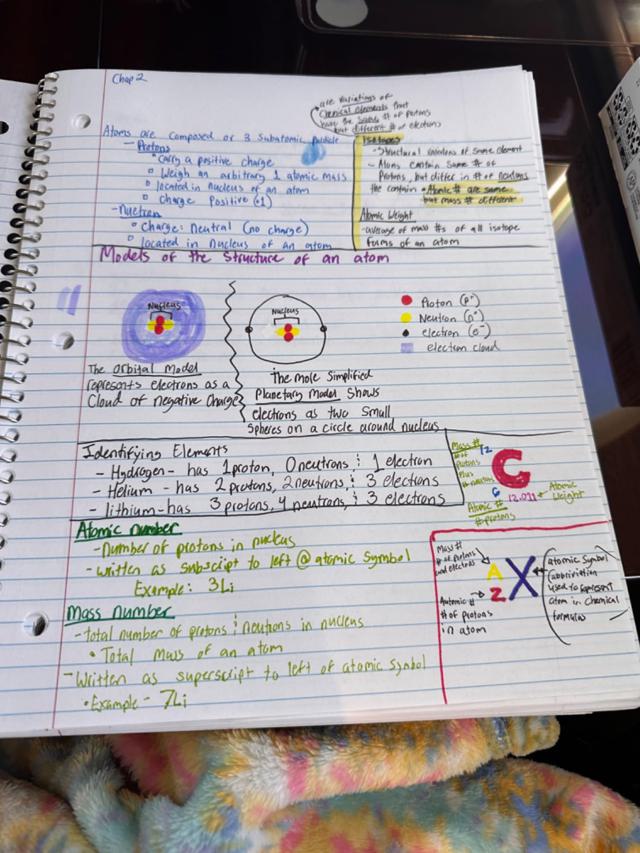 Chap 2
are variations of
chemical elements that
have the same # of protons
but different # of electrons
Atoms are composed of 3 Subatomic Particle
- Protons
Carry a positive charge
Weigh an arbitrary 1 atomic mass
located in nucleus of an atom
charge Positive (+1)
- Nuetron
Charge: Neutral (no charge)
located in Nucleus of an atom
Isotopes
- Structural variations of same element
- Atoms contain same # of
Protons, but differ in # of neutrons
the contain • Atomic # are same
but mass # different
Atomic Weight
- average of mass #s of all isotope
forms of an atom
Models of the Structure of an atom
Nucleus
The orbital Model
represents electrons as a
Cloud of negative Charge
Nucleus
The more Simplified
Planetary Model Shows
electrons as two Small
Spheres on a circle around nucleus
Proton (p+)
Neutron (n°)
electron (e-)
electron cloud
Identifying Elements
- Hydrogen - has 1 proton, 0 neutrons, & 1 electron
- Helium - has 2 protons, 2 neutrons, & 3 electrons
- lithium - has 3 protons, 4 neutrons, & 3 electrons
Mass #
# of
protons
plus
12
C
6
12.011 Atomic
Weight
Atomic #
# protons
Atomic number
- Number of protons in nucleus
- written as subscript to left @ atomic symbol
Example: 3Li
Mass number
- total number of protons & neutrons in nucleus
• Total Mass of an atom
- Written as superscript to left of atomic symbol
• Example - 7Li
Mass #
# of protons
and electrons
A
Z
X
Automic #
# of protons
in atom
atomic Symbol
(abbriviation
used to represent
atom in Chemical
formulas